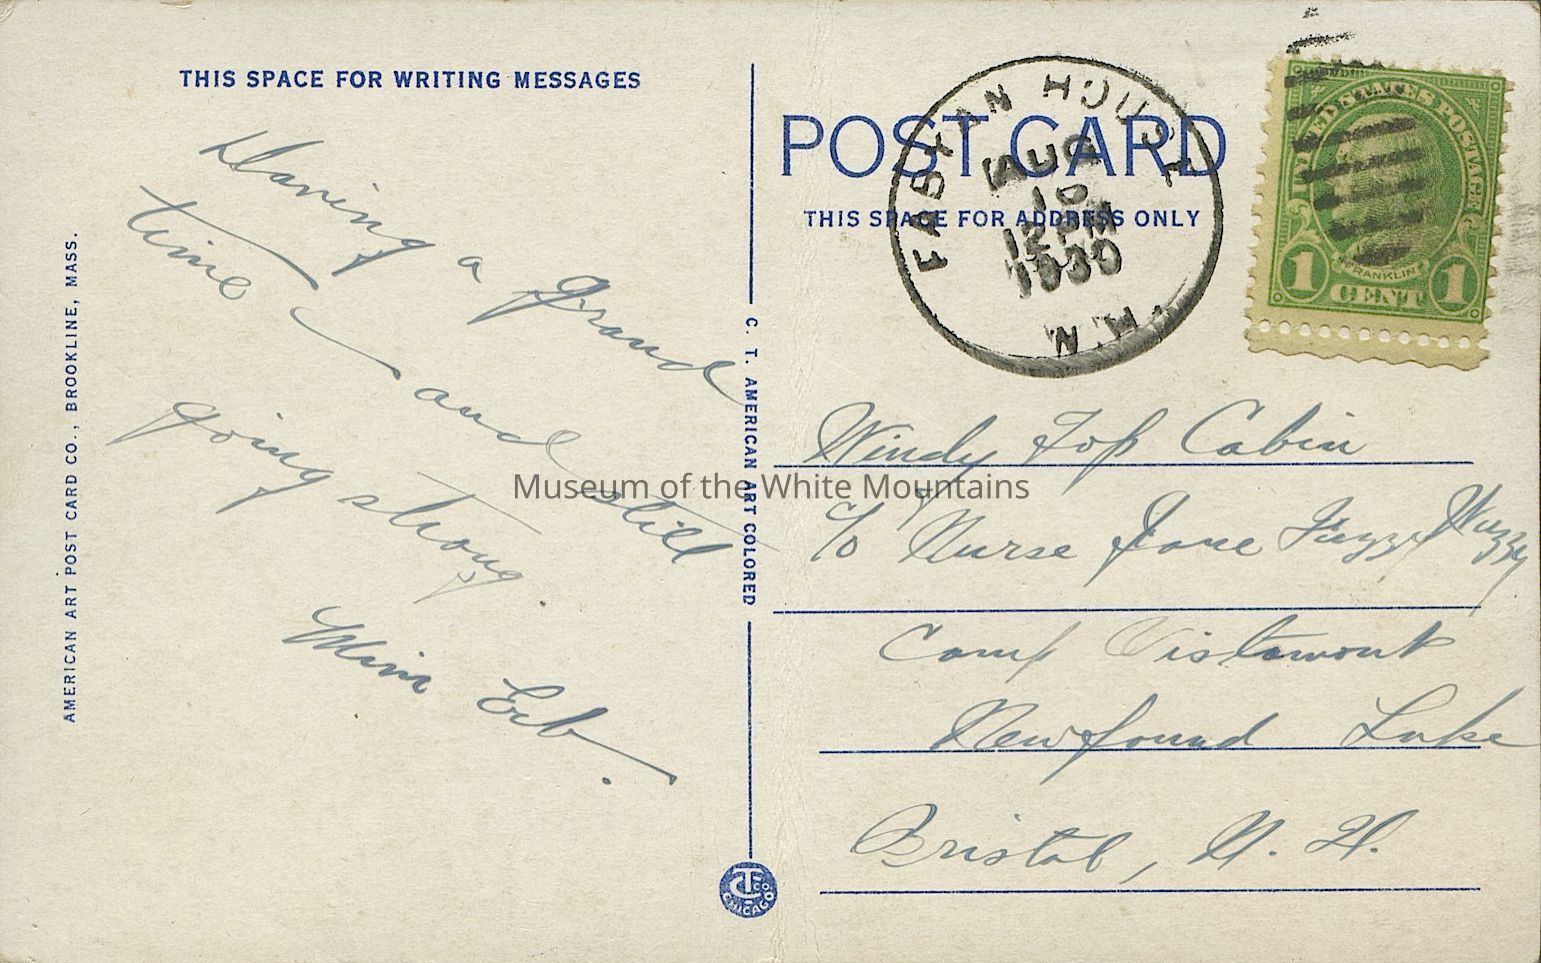 THIS SPACE FOR WRITING MESSAGES
Having a grand
time — and still
going strong.
Mim Erb.
AMERICAN ART POST CARD CO., BROOKLINE, MASS.
C. T. AMERICAN ART COLORED
CT CO CHICAGO
POST CARD
THIS SPACE FOR ADDRESS ONLY
FABYAN HOUSE
AUG
10
12 PM
1930
N.H.
UNITED STATES POSTAGE
FRANKLIN
1 CENT 1
Windy Top Cabin
c/o Nurse Jane Fuzzy Wuzzy
Camp Vistamont
Newfound Lake
Bristol, N. H.
Museum of the White Mountains